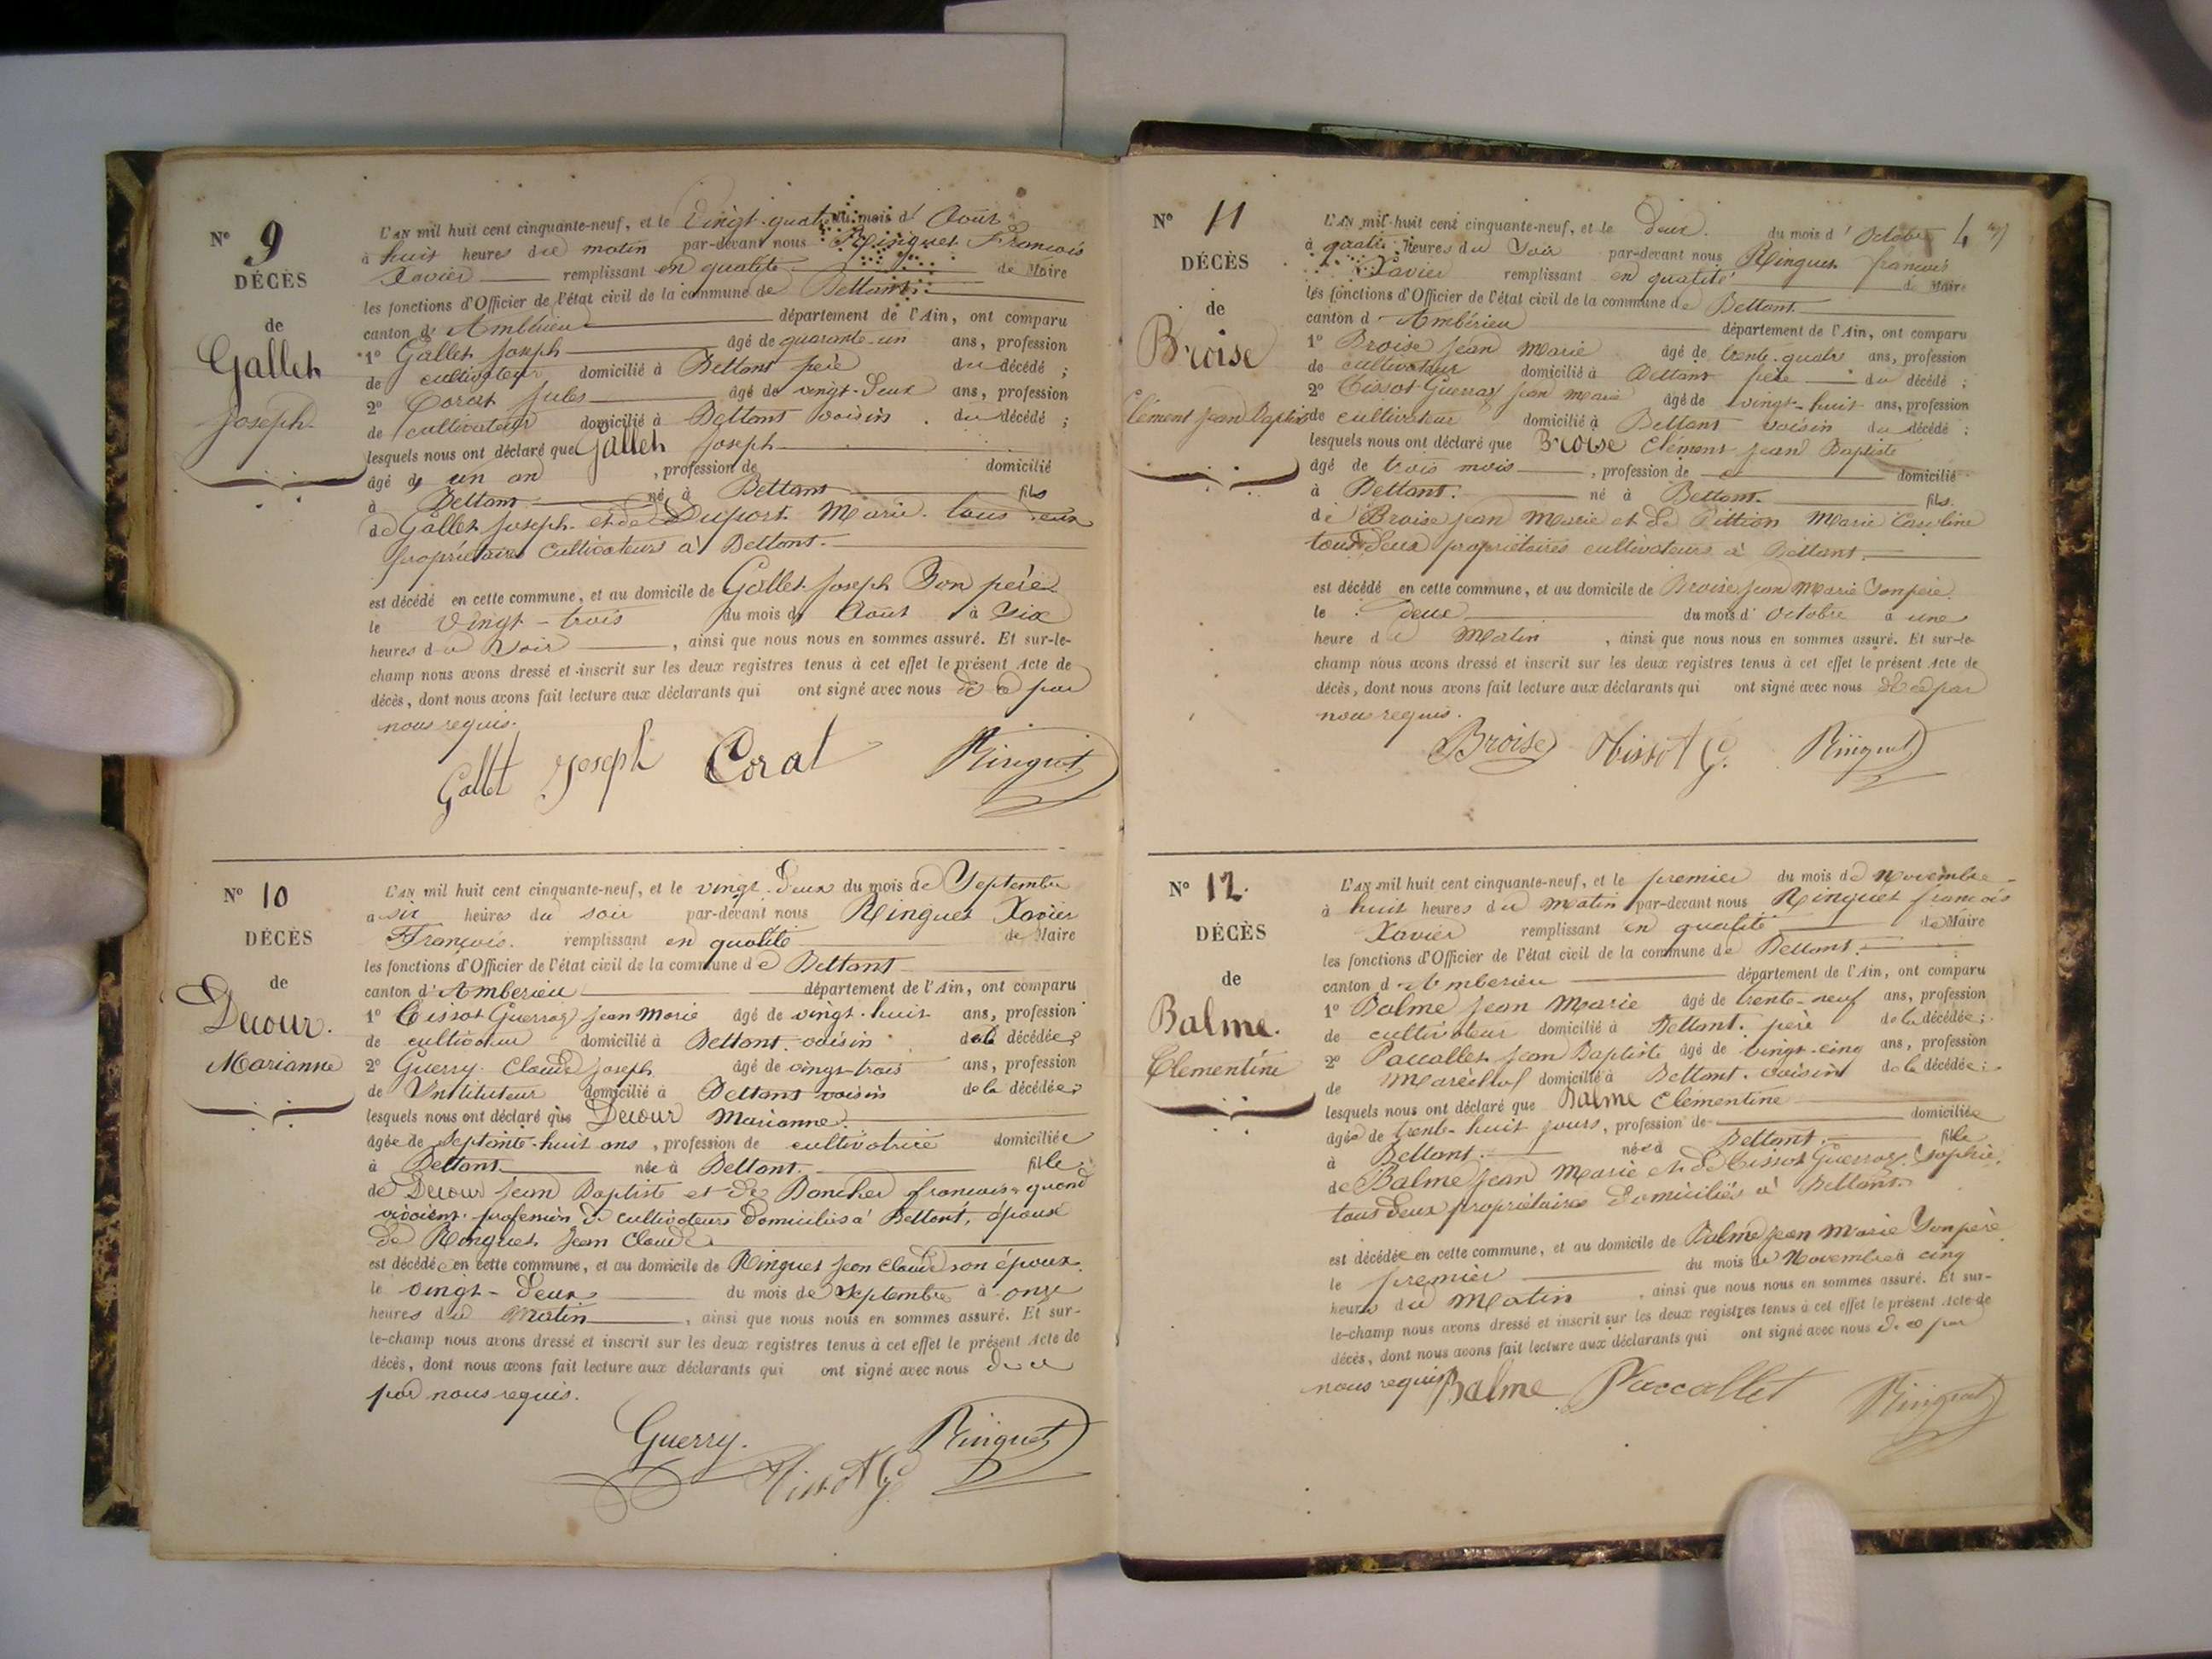 N° 9
DÉCÈS
de
Gallet
Joseph.
L'AN mil huit cent cinquante-neuf, et le Vingt-quatre du mois d' Août
à huit heures du matin par-devant nous Ringuet François
Xavier remplissant en qualité de Maire
les fonctions d'Officier de l'état civil de la commune de Bettant.
canton d' Ambérieu département de l'Ain, ont comparu
1° Gallet Joseph âgé de quarante-un ans, profession
de cultivateur domicilié à Bettant père du décédé ;
2° Corat Jules âgé de vingt-deux ans, profession
de cultivateur domicilié à Bettant voisin du décédé ;
lesquels nous ont déclaré que Gallet Joseph
âgé de un an , profession de domicilié
à Bettant né à Bettant fils
de Gallet Joseph et de Duport Marie tous deux
propriétaires cultivateurs à Bettant.
est décédé en cette commune, et au domicile de Gallet Joseph son père
le vingt-trois du mois d' Août à six
heures du soir , ainsi que nous nous en sommes assuré. Et sur-le-
champ nous avons dressé et inscrit sur les deux registres tenus à cet effet le présent Acte de
décès, dont nous avons fait lecture aux déclarants qui ont signé avec nous de ce par
nous requis.
Gallet Joseph Corat Ringuet
N° 10
DÉCÈS
de
Decour.
Marianne
L'AN mil huit cent cinquante-neuf, et le vingt-deux du mois de Septembre
à six heures du soir par-devant nous Ringuet Xavier
François. remplissant en qualité de Maire
les fonctions d'Officier de l'état civil de la commune de Bettant
canton d' Amberieu département de l'Ain, ont comparu
1° Tissot Guerraz Jean Marie âgé de vingt-huit ans, profession
de cultivateur domicilié à Bettant voisin de la décédée ;
2° Guerry Claude Joseph âgé de vingt-trois ans, profession
de Instituteur domicilié à Bettant voisin de la décédée ;
lesquels nous ont déclaré que Decour Marianne.
âgée de septante-huit ans , profession de cultivatrice domiciliée
à Bettant née à Bettant. fille
de Decour Jean Baptiste et de Boncher françoise quand
vivaient profession de cultivateurs domiciliés à Bettant, épouse
de Ringuet Jean Claude
est décédée en cette commune, et au domicile de Ringuet Jean Claude son époux.
le vingt-deux du mois de Septembre à onze
heures du matin , ainsi que nous nous en sommes assuré. Et sur-
le-champ nous avons dressé et inscrit sur les deux registres tenus à cet effet le présent Acte de
décès, dont nous avons fait lecture aux déclarants qui ont signé avec nous de ce
par nous requis.
Guerry. Tissot G. Ringuet
N° 11
DÉCÈS
de
Broise
Clément Jean Baptiste
L'AN mil huit cent cinquante-neuf, et le deux. du mois d' Octobre
à quatre heures du soir par-devant nous Ringuet françois
Xavier remplissant en qualité de Maire
les fonctions d'Officier de l'état civil de la commune de Bettant.
canton d' Ambérieu département de l'Ain, ont comparu
1° Broise Jean Marie âgé de trente-quatre ans, profession
de cultivateur domicilié à Bettant père du décédé ;
2° Tissot Guerraz Jean Marie âgé de vingt-huit ans, profession
de cultivateur domicilié à Bettant voisin du décédé ;
lesquels nous ont déclaré que Broise Clément Jean Baptiste
âgé de trois mois , profession de domicilié
à Bettant. né à Bettant. fils
de Broise Jean Marie et de Pittion Marie Caroline
tous deux propriétaires cultivateurs à Bettant.
est décédé en cette commune, et au domicile de Broise Jean Marie son père.
le deux du mois d' octobre à une
heure du Matin , ainsi que nous nous en sommes assuré. Et sur-le-
champ nous avons dressé et inscrit sur les deux registres tenus à cet effet le présent Acte de
décès, dont nous avons fait lecture aux déclarants qui ont signé avec nous de ce par
nous requis.
Broise Tissot G. Ringuet
N° 12.
DÉCÈS
de
Balme.
Clementine
L'AN mil huit cent cinquante-neuf, et le premier du mois de Novembre
à huit heures du matin par-devant nous Ringuet françois
Xavier remplissant en qualité de Maire
les fonctions d'Officier de l'état civil de la commune de Bettant.
canton d' Amberieu département de l'Ain, ont comparu
1° Balme Jean Marie âgé de trente-neuf ans, profession
de cultivateur domicilié à Bettant. père de la décédée ;
2° Paccallet Jean Baptiste âgé de vingt-cinq ans, profession
de Maréchal domicilié à Bettant. voisin de la décédée ;
lesquels nous ont déclaré que Balme Clementine
âgée de trente-huit jours, profession de domiciliée
à Bettant. née à Bettant. fille
de Balme Jean Marie et de Tissot Guerraz Sophie.
tous deux propriétaires domiciliés à Bettant.
est décédée en cette commune, et au domicile de Balme Jean Marie son père
le premier du mois de Novembre à cinq
heures du Matin , ainsi que nous nous en sommes assuré. Et sur-
le-champ nous avons dressé et inscrit sur les deux registres tenus à cet effet le présent Acte de
décès, dont nous avons fait lecture aux déclarants qui ont signé avec nous de ce par
nous requis Balme Paccallet Ringuet